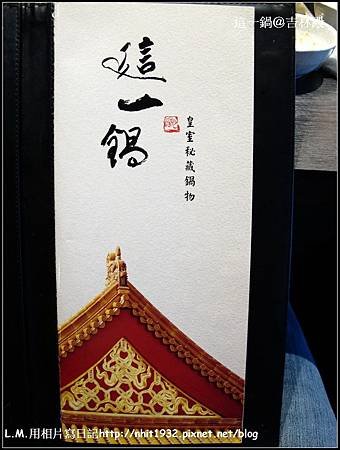 這一鍋@吉林殿
這一鍋
皇室秘藏鍋物
L.M.用相片寫日記http://nhit1932.pixnet.net/blog